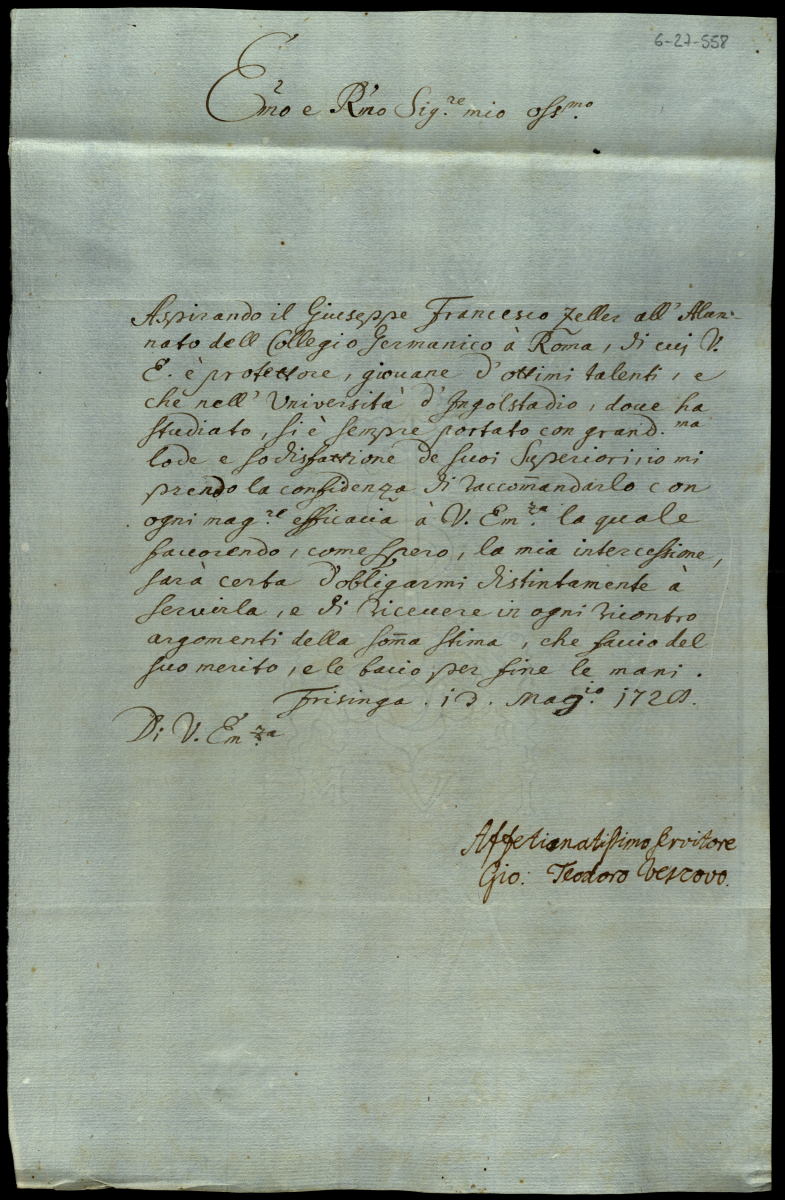 6-27-558
Em̃o e Rm̃o Sig.re mio oss.mo
Aspirando il Giuseppe Francesco Zeller all' Alun-
nato dell Collegio Germanico à Roma, di cui V.
E. è protettore, giouane d'ottimi talenti, e
che nell' Università d'Ingolstadio, doue ha
studiato, si è sempre portato con grand.ma
lode e sodisfattione de suoi Superiori, io mi
prendo la confidenza di raccom̃andarlo con
ogni mag.re efficacia à V. Em.za la quale
fauorendo, come spero, la mia intercessione,
sarà certa d'obligarmi distintamente à
seruirla, e di riceuere in ogni ricontro
argomenti della som̃a stima, che faccio del
suo merito, e le bacio per fine le mani.
Frisinga. 13. Mag.io 1728.
Di V. Em.za
Affetionatissimo servitore
Gio: Teodoro Vescovo.